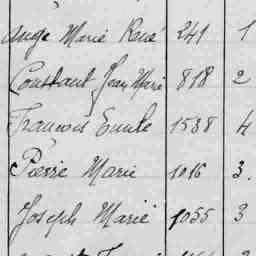 Ange Marie René 241 1
Constant Jean Marie 818 2
Francois Emile 1538 4
Pierre Marie 1016 3.
Joseph Marie 1055 3